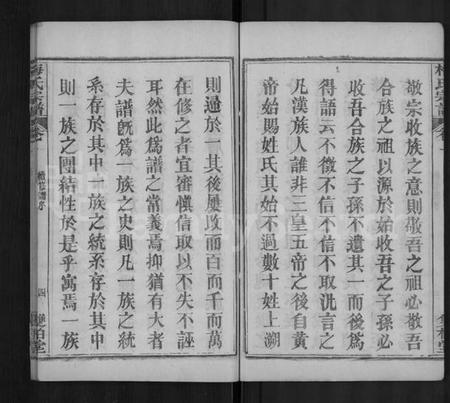 敬宗收族之意則敬吾之祖必敬吾
合族之祖以源於始收吾之子孫必
收吾合族之子孫不遺其一而後爲
得語云不徵不信不信不取汎言之
凡漢族人誰非三皇五帝之後自黄
帝始賜姓氏其始不過數十姓上溯
則過於一其後屢改而百而千而萬
在修之者宜審愼信取以不失不誣
耳然此爲譜之常義焉抑猶有大者
夫譜旣爲一族之史則凡一族之統
系存於其中一族之統系存於其中
則一族之團結性於是乎寓焉一族
梅氏宗譜
卷
四